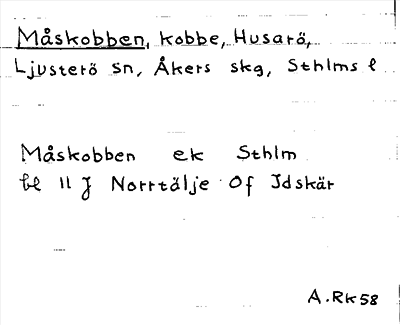 Måskobben, kobbe, Husarö,
Ljusterö sn, Åkers skg, Sthlms l
Måskobben ek Sthlm
bl 11 J Norrtälje Of Idskär
A.Rk 58